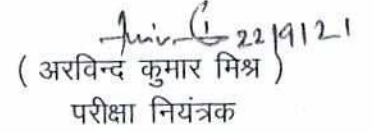 22/9/21
( अरविन्द कुमार मिश्र )
परीक्षा नियंत्रक